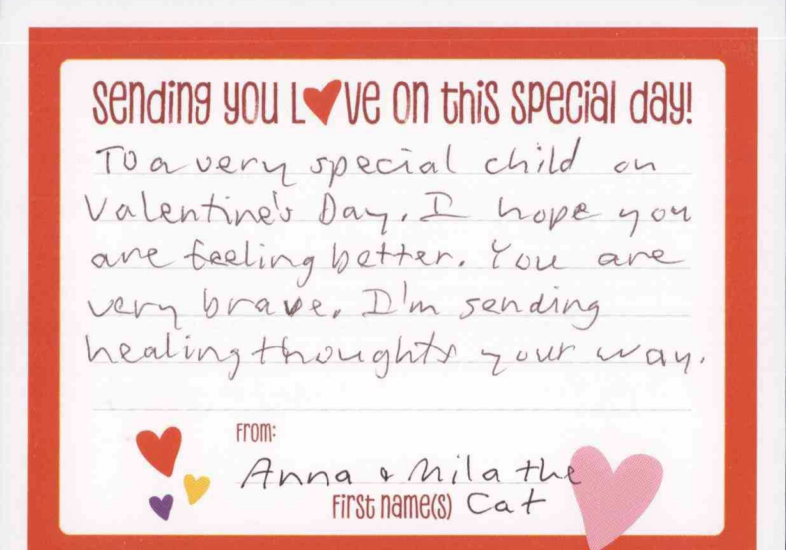 sending you Love on this special day!
To a very special child on
Valentine's Day. I hope you
are feeling better. You are
very brave. I'm sending
healing thoughts your way.
From:
Anna & Mila the
First name(s) Cat